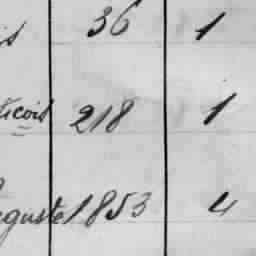 is 36 1
ticois 218 1
guste 1853 4